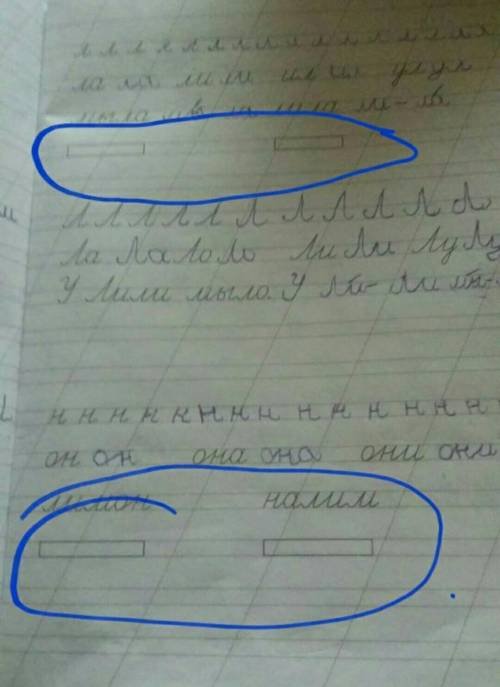 л л л л л л л л л л л л л л
ла ла ли ли ил ил ул ул
мыла мы ла мила ми-ла
Л Л Л Л Л Л Л Л Л Л Ло
Ла Ла Ло Ло Ли Ли Лу Лу
У Лили мыло. У Ли- Ли
н н н н н н н н н н н н н н
он он она она они они
лимон налим